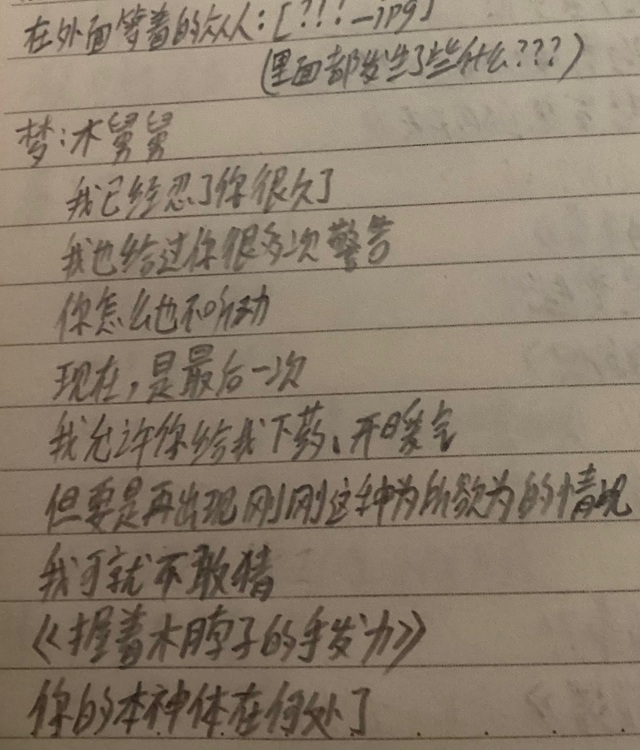 在外面等着的众人:[???_jpg]
(里面都发生了些什么???)
梦:木舅舅
我已经忍了你很久了
我也给过你很多次警告
你怎么也不听劝
现在,是最后一次
我允许你给我下药、开暖气
但要是再出现刚刚这种为所欲为的情况
我可就不敢猜
《《握着木脖子的手发力》》
你的本神体在何处了